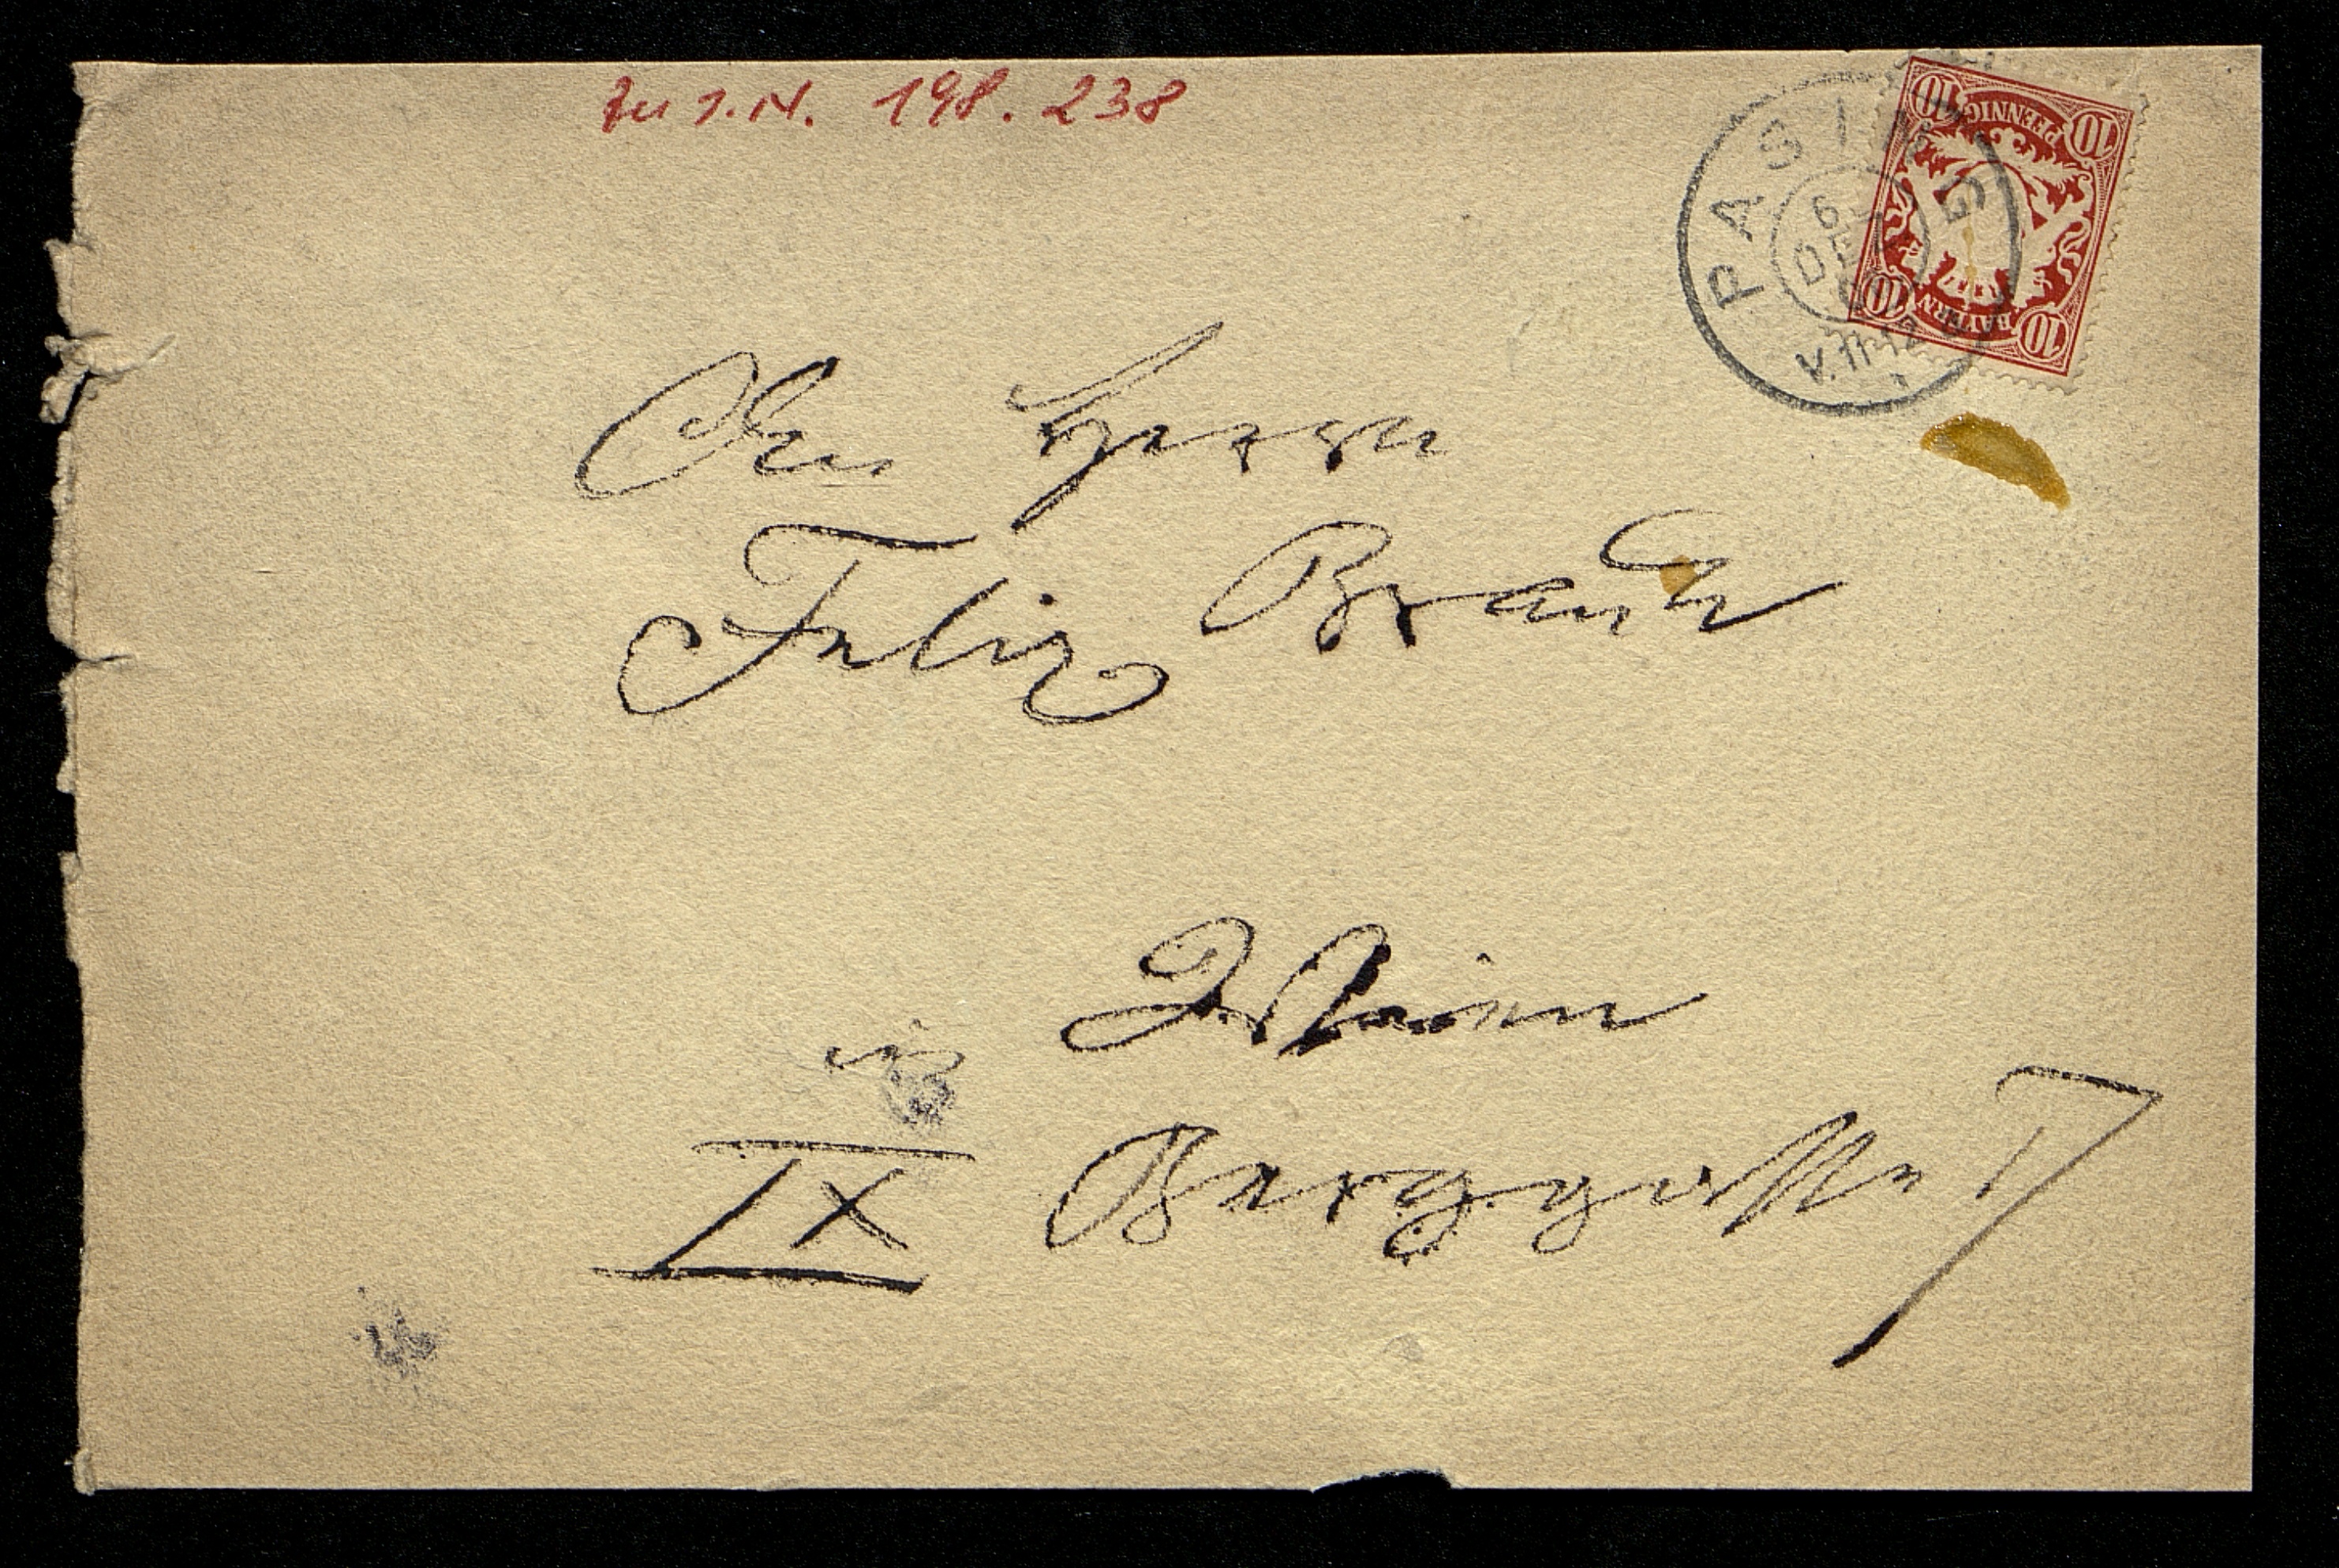 zu I.N. 198.238
PASING
6 DE
V.11-12
10 PFENNIG 10
10 BAYERN 10
An Herrn
Felix Braun
in Wien
IX Berggasse 17